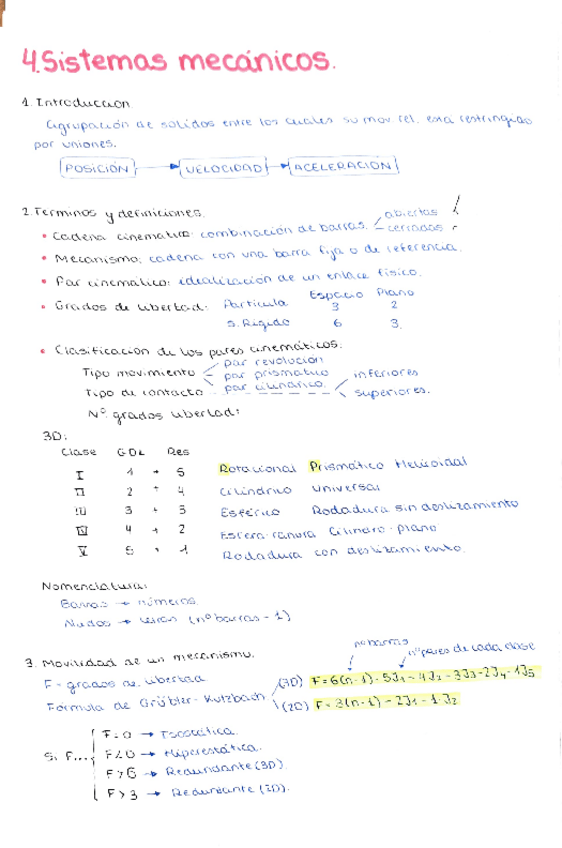 4. Sistemas mecánicos.
1. Introducción
Agrupación de sólidos entre los cuales su mov. rel. esta restringido
por uniones.
POSICIÓN → VELOCIDAD → ACELERACIÓN
2. Terminos y definiciones.
• Cadena cinematica: combinación de barras. abiertas
cerradas
• Mecanismo: cadena con una barra fija o de referencia.
• Par cinemático: idealización de un enlace físico.
• Grados de libertad: Espacio Plano
Partícula 3 2
S. Rígido 6 3.
• Clasificación de los pares cinemáticos:
Tipo movimiento par revolución
par prismático
par cilíndrico.
Tipo de contacto inferiores
superiores.
Nº grados libertad:
3D:
Clase GDL Res
I 1 + 5 Rotacional Prismático Helicoidal
II 2 + 4 Cilíndrico Universal
III 3 + 3 Esférico Rodadura sin deslizamiento
IV 4 + 2 Esfera-ranura Cilindro-plano
V 5 + 1 Rodadura con deslizamiento.
Nomenclatura:
Barras → números
Nudos → letras (nº barras - 1)
3. Movilidad de un mecanismo.
nº barras nº pares de cada clase
F - grados de libertad
Fórmula de Grübler-Kutzbach (3D) F = 6(n-1) - 5J1 - 4J2 - 3J3 - 2J4 - 1J5
(2D) F = 3(n-1) - 2J1 - 1J2
Si F... F = 0 → Isostática.
F < 0 → Hiperestática.
F > 6 → Redundante (3D).
F > 3 → Redundante (2D).